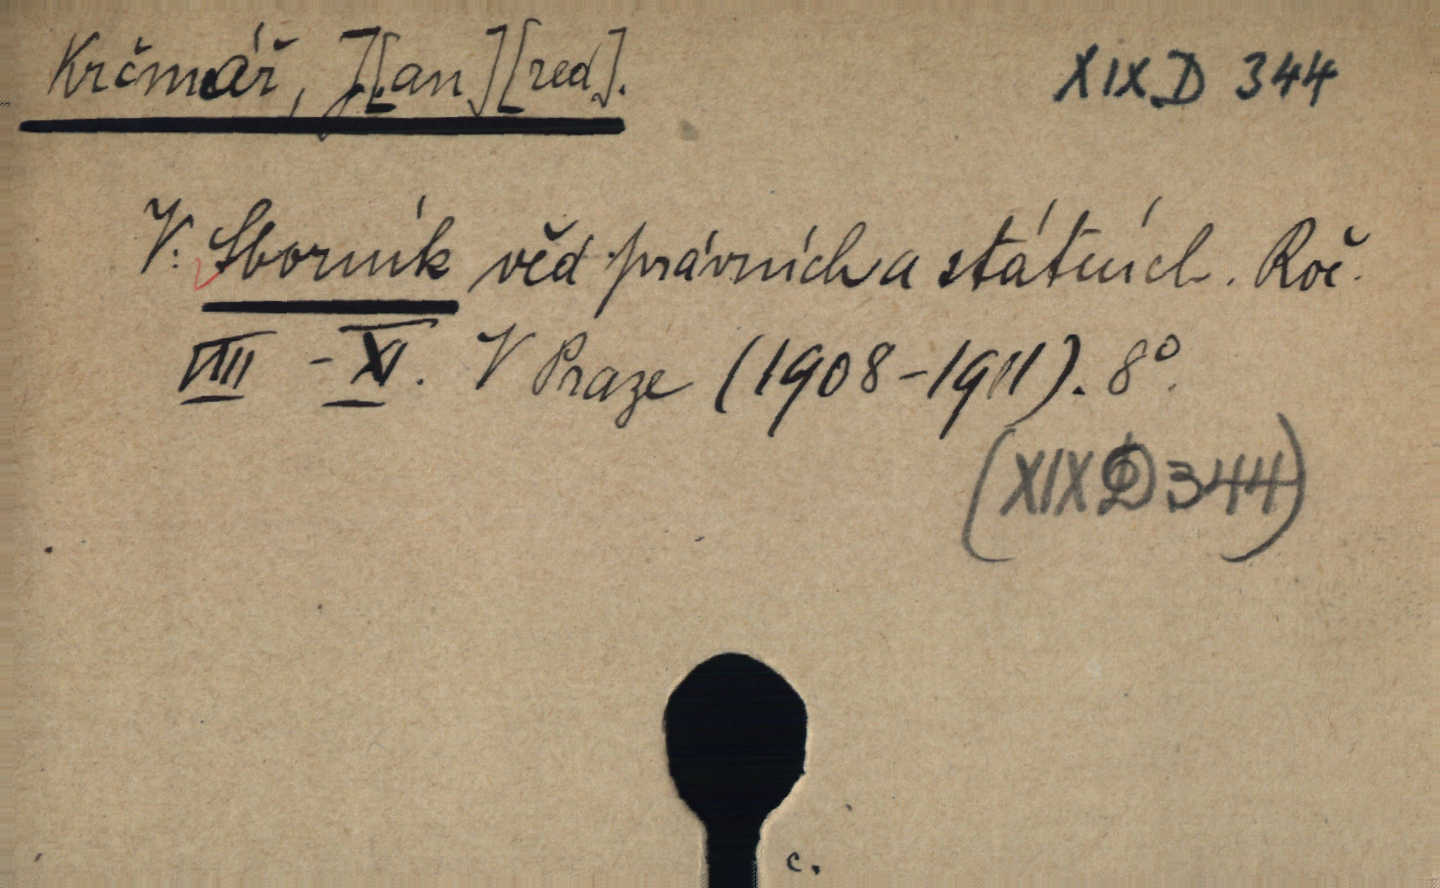 Krčmář, J[an] [red]. XIX D 344
V: Sborník věd právních a státních. Roč.
VIII - XI. V Praze (1908-1911). 8°.
(XIX D 344)
c.